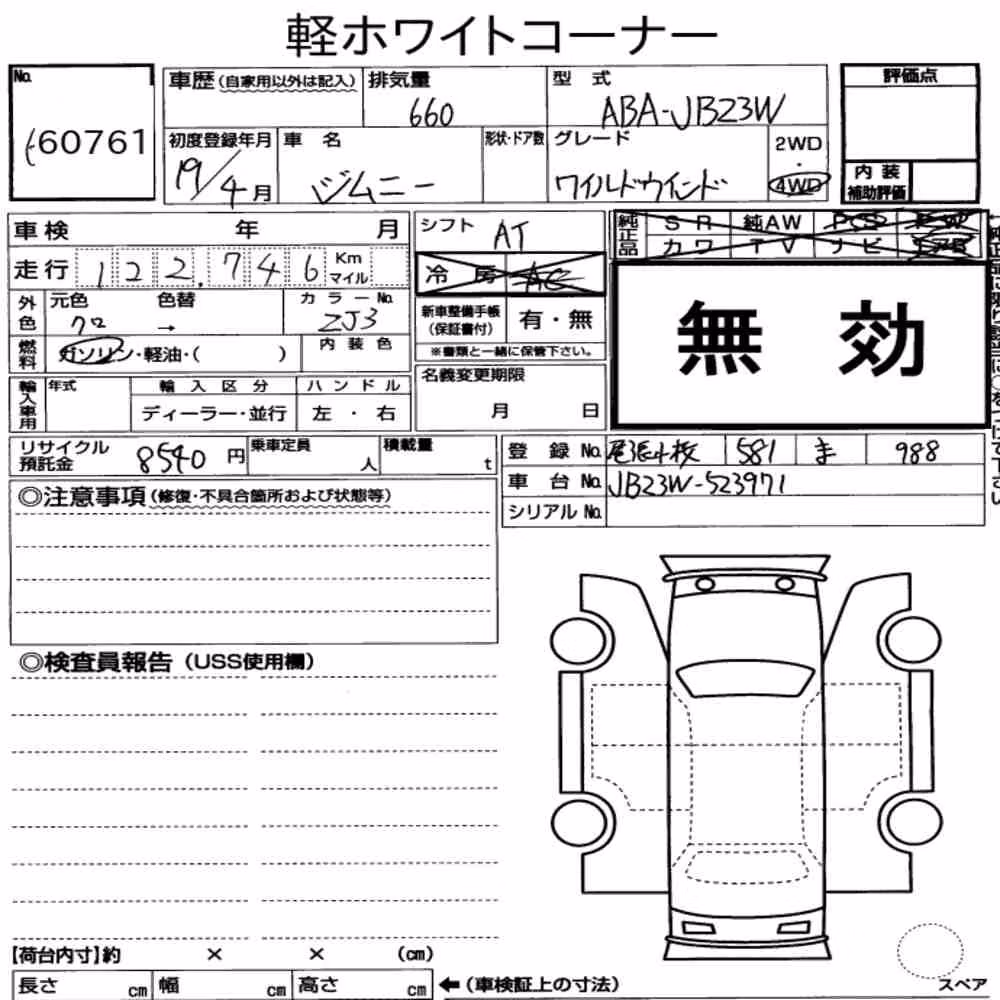 軽ホワイトコーナー
No.
60761
車歴(自家用以外は記入)
排気量
660
型 式
ABA-JB23W
評価点
初度登録年月
19/4月
車 名
ジムニー
形状・ドア数
グレード
ワイルドウインド
2WD
・
4WD
内 装
補助評価
車 検 年 月
走 行 122,746 Km
マイル
シフト
AT
冷 房 AC
純正品
S R 純AW P S P W
カ ワ T V ナ ビ
外色
元色 色替
クロ →
カ ラ ー No.
ZJ3
燃料
ガソリン・軽油・( )
内 装 色
新車整備手帳
(保証書付)
有・無
※書類と一緒に保管下さい。
無 効
輸入車用
年式
輸 入 区 分
ディーラー・並行
ハ ン ド ル
左 ・ 右
名義変更期限
月 日
リサイクル
預託金
8540 円
乗車定員
人
積載量
t
登 録 No. 尾張小牧 581 ま 988
車 台 No. JB23W-523971
シリアル No.
◎注意事項(修復・不具合箇所および状態等)
◎検査員報告(USS使用欄)
【荷台内寸】約 × × (cm)
長さ cm
幅 cm
高さ cm
←(車検証上の寸法)
スペア